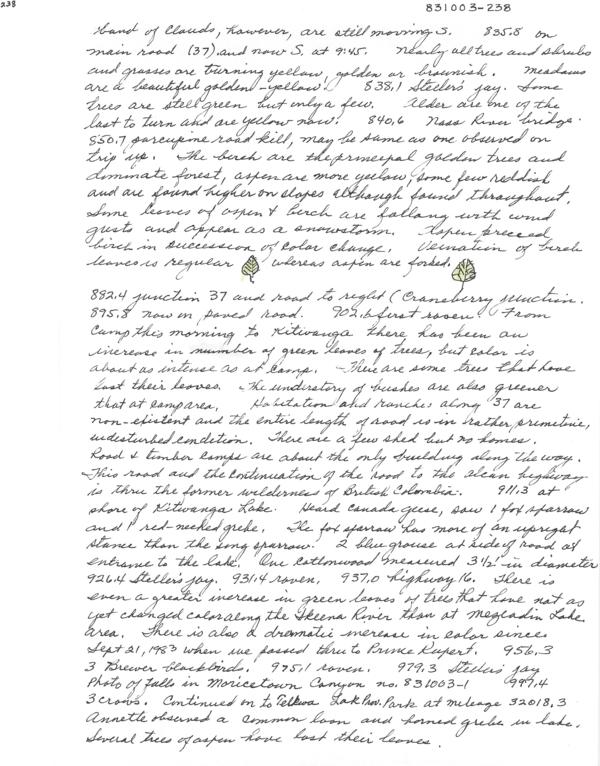 238
831003-238
band of clouds, however, are still moving S. 835.5 on
main road (37) and now S. at 9:45. Nearly all trees and shrubs
and grasses are turning yellow, golden or brownish. Meadows
are a beautiful golden-yellow. 838.1 Steller's jay. Some
trees are still green but only a few. Alder are one of the
last to turn and are yellow now. 840.6 Nass River bridge.
850.7 porcupine road kill, may be same as one observed on
trip up. The birch are the principal golden trees and
dominate forest, aspen are more yellow, some few reddish
and are found higher on slopes although found throughout.
Some leaves of aspen & birch are falling with wind
gusts and appear as a snowstorm. Aspen preceed
birch in succession of color change. Veination of birch
leaves is regular whereas aspen are forked.
892.4 junction 37 and road to right (Cranberry junction.
895.8 now on paved road. 902.6 first raven. From
camp this morning to Kitwanga there has been an
increase in number of green leaves of trees, but color is
about as intense as at camp. There are some trees that have
lost their leaves. The understory of bushes are also greener
that at camp area. Habitation and ranches along 37 are
non-existent and the entire length of road is in rather primitive,
undisturbed condition. There are a few shed but no homes.
Road & timber camps are about the only building along the way.
This road and the continuation of the road to the Alcan highway
is thru the former wilderness of British Colombia. 911.3 at
shore of Kitwanga Lake. Heard Canada geese, saw 1 fox sparrow
and 1 red-necked grebe. The fox sparrow has more of an upright
stance than the song sparrow. 2 blue grouse at side of road at
entrance to the lake. One cottonwood measured 3 1/2' in diameter
926.4 Steller's jay. 931.4 raven, 937.0 highway 16. There is
even a greater increase in green leaves of trees that have not as
yet changed color along the Skeena River than at Meziadin Lake
area. There is also a dramatic increase in color since
Sept 21, 1983 when we passed thru to Prince Rupert. 956.3
3 Brewer blackbirds. 975.1 raven. 979.3 Steller's jay
Photo of falls in Moricetown Canyon no. 831003-1 997.4
3 crows. Continued on to Telkwa Lak Prov. Park at mileage 32018.3
Annette observed a common loon and horned grebe in lake.
Several trees of aspen have lost their leaves.